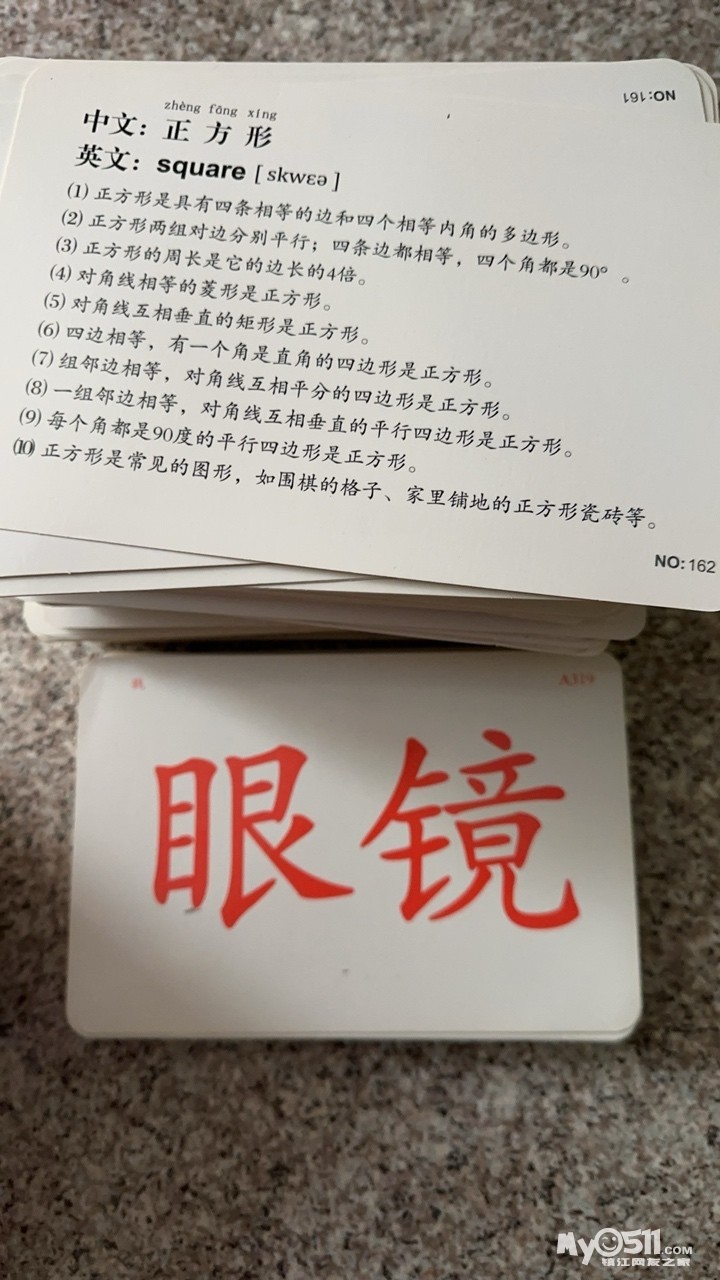 NO:161
zhèng fāng xíng
中文：正方形
英文：square [ skwɛə ]
(1) 正方形是具有四条相等的边和四个相等内角的多边形。
(2) 正方形两组对边分别平行；四条边都相等，四个角都是90°。
(3) 正方形的周长是它的边长的4倍。
(4) 对角线相等的菱形是正方形。
(5) 对角线互相垂直的矩形是正方形。
(6) 四边相等，有一个角是直角的四边形是正方形。
(7) 组邻边相等，对角线互相平分的四边形是正方形。
(8) 一组邻边相等，对角线互相垂直的平行四边形是正方形。
(9) 每个角都是90度的平行四边形是正方形。
(10) 正方形是常见的图形，如围棋的格子、家里铺地的正方形瓷砖等。
NO:162
A319
眼镜
MyO511.COM
镇江网友之家